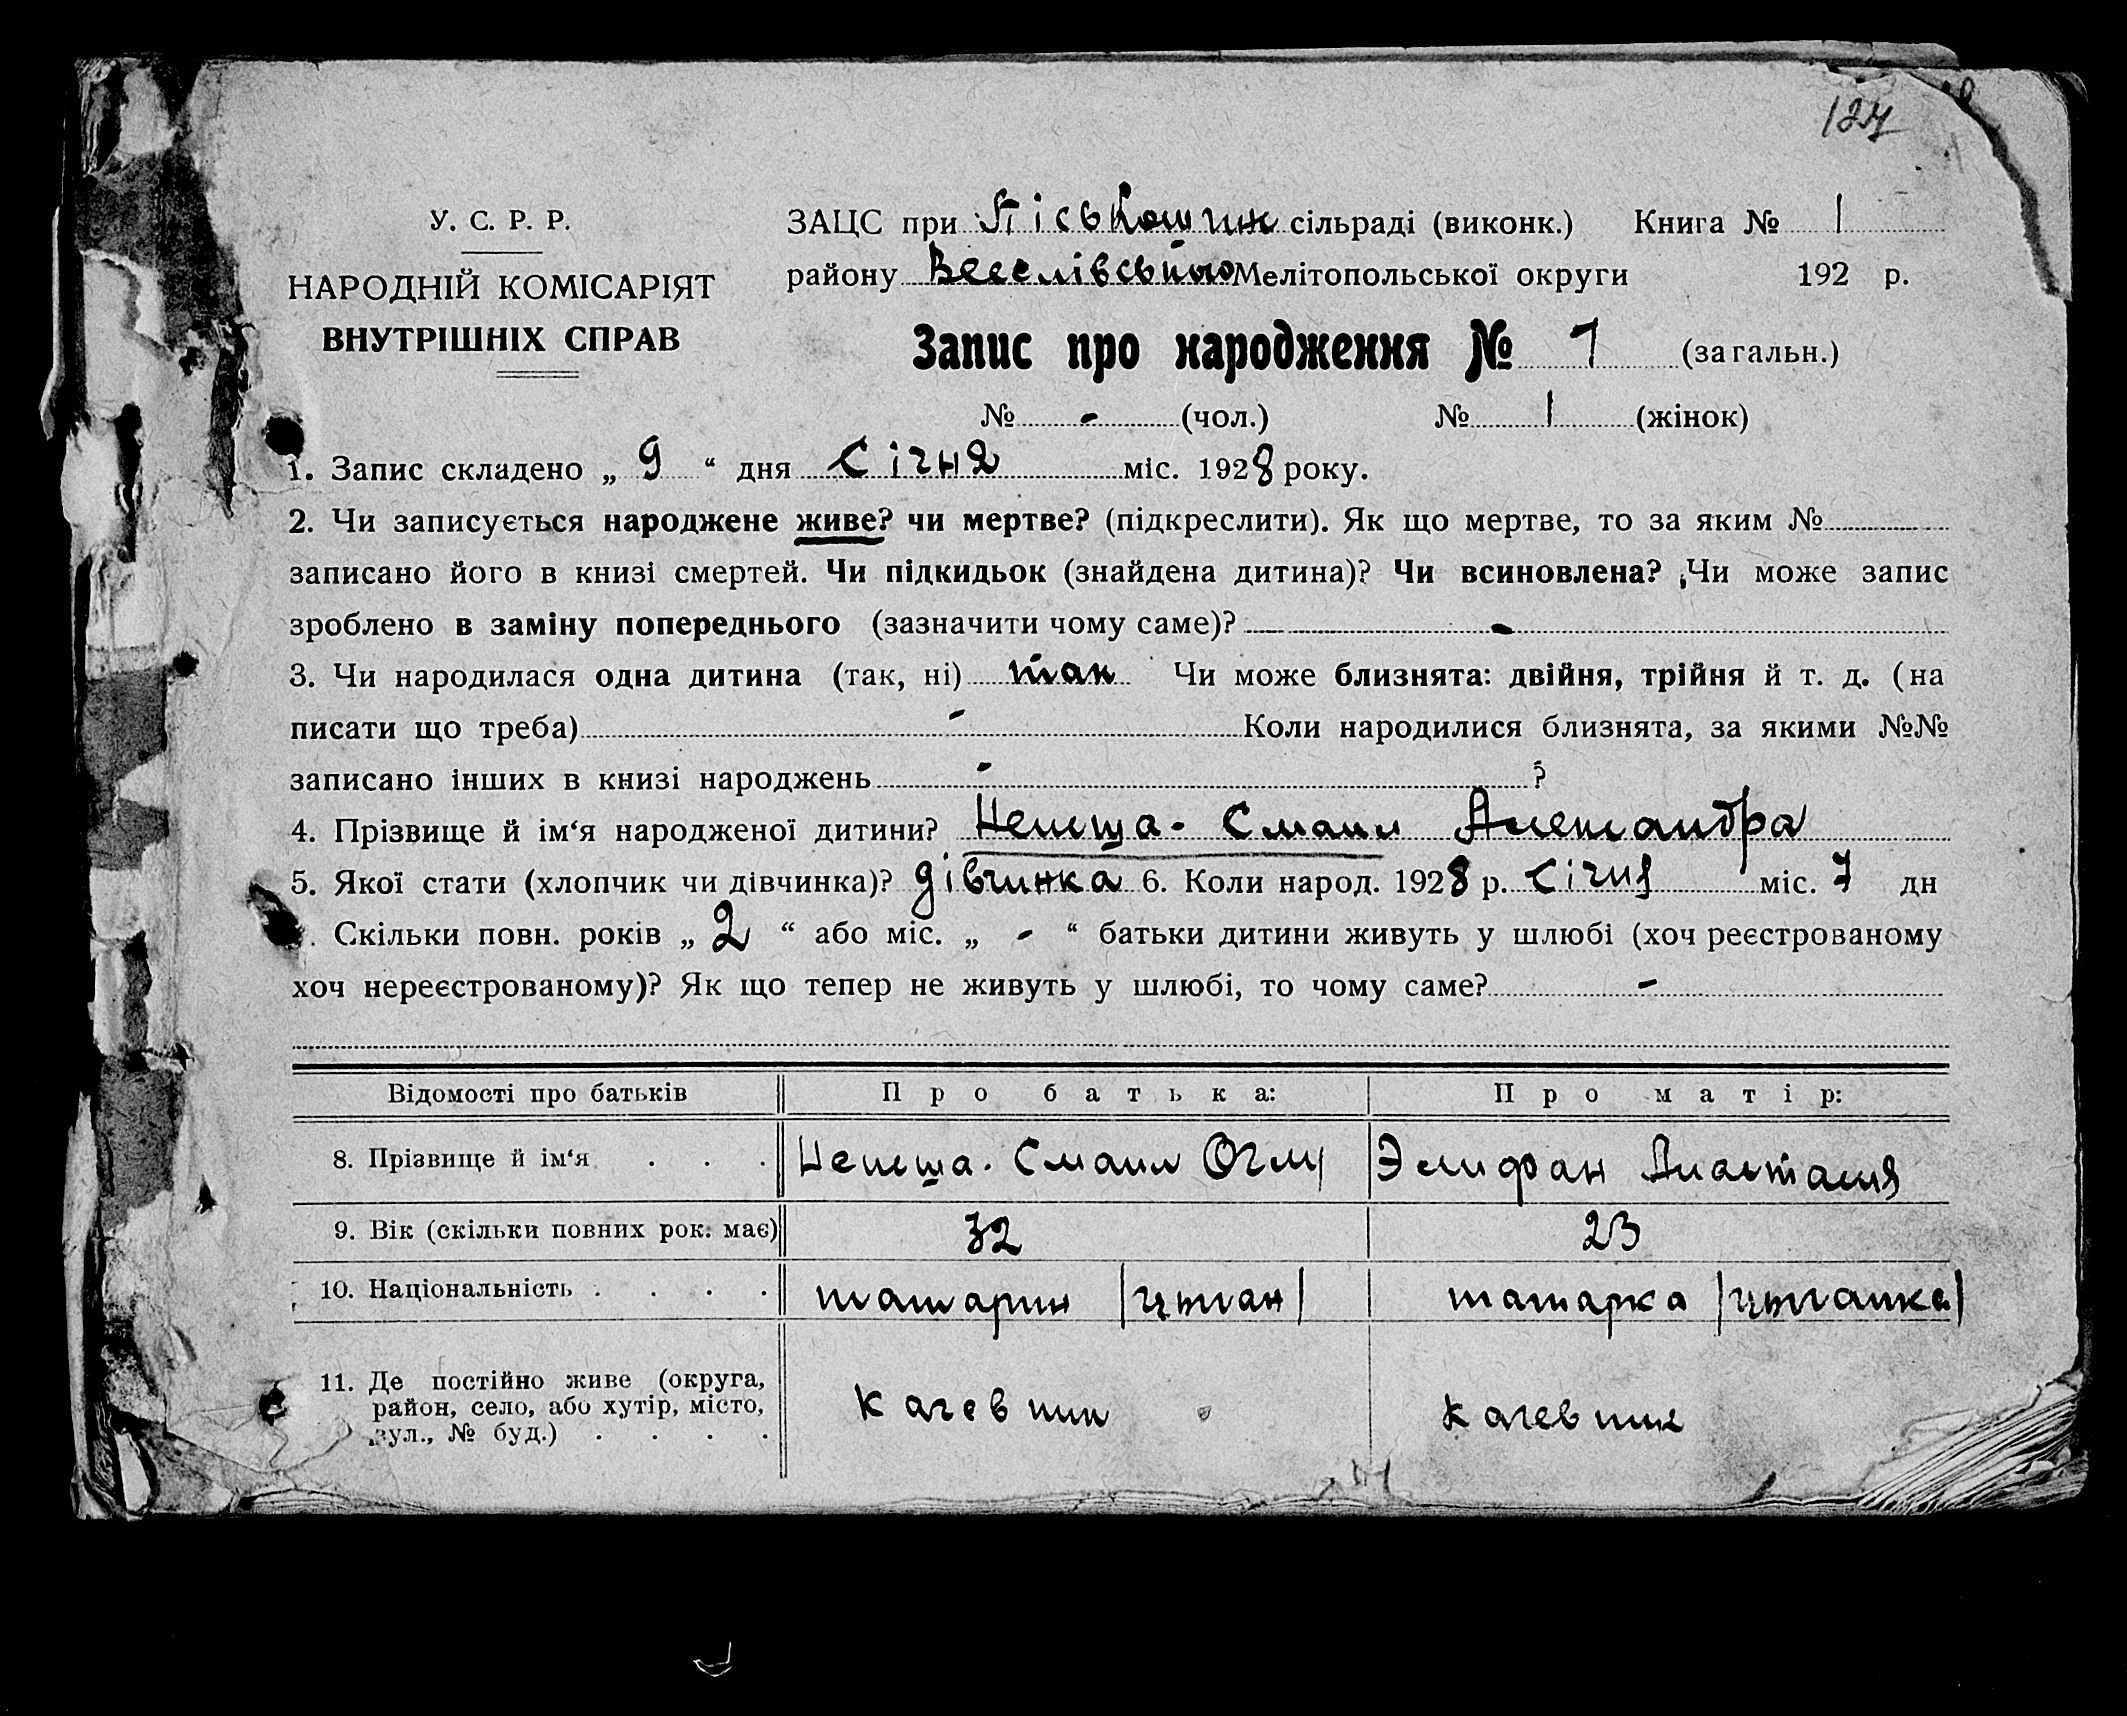 127
У. С. Р. Р.
НАРОДНІЙ КОМІСАРІЯТ
ВНУТРІШНІХ СПРАВ
ЗАЦС при сільраді (виконк.) Книга № 1
району Веселівського Мелітопольської округи 192 р.
Запис про народження № 1 (загальн.)
№ - (чол.) № 1 (жінок)
1. Запис складено „ 9 “ дня Січня міс. 1928 року.
2. Чи записується народжене живе? чи мертве? (підкреслити). Як що мертве, то за яким №
записано його в книзі смертей. Чи підкидьок (знайдена дитина)? Чи всиновлена? Чи може запис
зроблено в заміну попереднього (зазначити чому саме)? -
3. Чи народилася одна дитина (так, ні) так Чи може близнята: двійня, трійня й т. д. (на
писати що треба) - Коли народилися близнята, за якими №№
записано інших в книзі народжень - ?
4. Прізвище й ім‘я народженої дитини? Смаил Александра
5. Якої стати (хлопчик чи дівчинка)? дівчинка 6. Коли народ. 1928 р. Січня міс. 7 дн
. Скільки повн. років „ 2 “ або міс. „ - “ батьки дитини живуть у шлюбі (хоч реєстрованому
хоч нереєстрованому)? Як що тепер не живуть у шлюбі, то чому саме? -
Відомості про батьків Про батька: Про матір:
8. Прізвище й ім‘я . . . Смаил Оглы Элифан Анастасия
9. Вік (скільки повних рок. має) 32 23
10. Національність . . . . татарин /циган/ татарка /циганка/
11. Де постійно живе (округа,
район, село, або хутір, місто,
вул., № буд.) . . . . Кагевник Кагевник